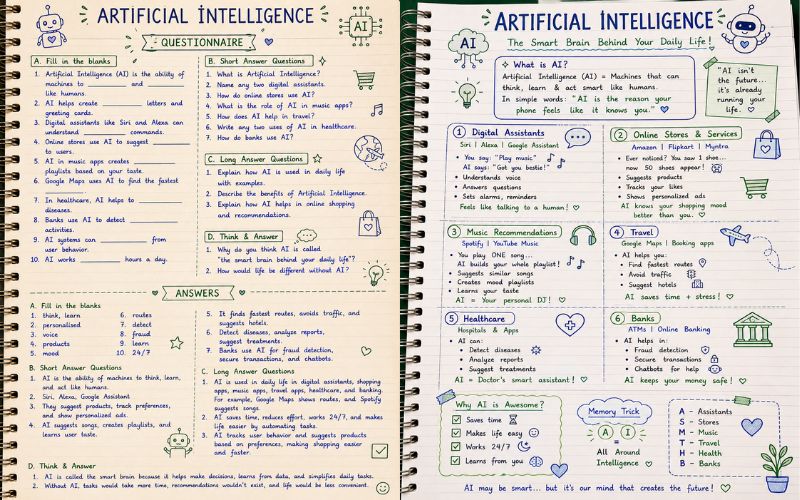 ARTIFICIAL INTELLIGENCE
AI
QUESTIONNAIRE
A. Fill in the blanks
1. Artificial Intelligence (AI) is the ability of
machines to ________ and ________
like humans.
2. AI helps create ________ letters and
greeting cards.
3. Digital assistants like Siri and Alexa can
understand ________ commands.
4. Online stores use AI to suggest ________
to users.
5. AI in music apps creates ________
playlists based on your taste.
6. Google Maps uses AI to find the fastest
________
7. In healthcare, AI helps to ________
diseases.
8. Banks use AI to detect ________
activities.
9. AI systems can ________ from
user behavior.
10. AI works ________ hours a day.
B. Short Answer Questions
1. What is Artificial Intelligence?
2. Name any two digital assistants.
3. How do online stores use AI?
4. What is the role of AI in music apps?
5. How does AI help in travel?
6. Write any two uses of AI in healthcare.
7. How do banks use AI?
C. Long Answer Questions
1. Explain how AI is used in daily life
with examples.
2. Describe the benefits of Artificial Intelligence.
3. Explain how AI helps in online shopping
and recommendations.
D. Think & Answer
1. Why do you think AI is called
"the smart brain behind your daily life"?
2. How would life be different without AI?
ANSWERS
A. Fill in the blanks
1. think, learn
2. personalised
3. voice
4. products
5. mood
6. routes
7. detect
8. fraud
9. learn
10. 24/7
B. Short Answer Questions
1. AI is the ability of machines to think, learn,
and act like humans.
2. Siri, Alexa, Google Assistant
3. They suggest products, track preferences,
and show personalized ads.
4. AI suggests songs, creates playlists, and
learns user taste.
5. It finds fastest routes, avoids traffic, and
suggests hotels.
6. Detect diseases, analyze reports,
suggest treatments.
7. Banks use AI for fraud detection,
secure transactions, and chatbots.
C. Long Answer Questions
1. AI is used in daily life in digital assistants, shopping
apps, music apps, travel apps, healthcare, and banking.
For example, Google Maps shows routes, and Spotify
suggests songs.
2. AI saves time, reduces effort, works 24/7, and makes
life easier by automating tasks.
3. AI tracks user behavior and suggests products
based on preferences, making shopping easier
and faster.
D. Think & Answer
1. AI is called the smart brain because it helps make decisions, learns from data, and simplifies daily tasks.
2. Without AI, tasks would take more time, recommendations wouldn't exist, and life would be less convenient.
ARTIFICIAL INTELLIGENCE
AI
The Smart Brain Behind Your Daily Life!
What is AI?
Artificial Intelligence (AI) = Machines that can
think, learn & act smart like humans.
In simple words: "AI is the reason your
phone feels like it knows you."
"AI isn't
the future...
it's already
running your
life."
1 Digital Assistants
Siri | Alexa | Google Assistant
• You say: "Play music"
AI says: "Got you bestie!"
• Understands voice
• Answers questions
• Sets alarms, reminders
Feels like talking to a human!
2 Online Stores & Services
Amazon | Flipkart | Myntra
• Ever noticed? You saw 1 shoe...
now 50 shoes appear!
• Suggests products
• Tracks your likes
• Shows personalized ads
AI knows your shopping mood
better than you.
3 Music Recommendations
Spotify | YouTube Music
• You play ONE song...
AI builds your whole playlist!
• Suggests similar songs
• Creates mood playlists
• Learns your taste
AI = Your personal DJ!
4 Travel
Google Maps | Booking apps
• AI helps you:
• Find fastest routes
• Avoid traffic
• Suggest hotels
AI saves time + stress!
5 Healthcare
Hospitals & Apps
• AI can:
• Detect diseases
• Analyze reports
• Suggest treatments
AI = Doctor's smart assistant!
6 Banks
ATMs | Online Banking
• AI helps in:
• Fraud detection
• Secure transactions
• Chatbots for help
AI keeps your money safe!
Why AI is Awesome?
Saves time
Makes life easy
Works 24/7
Learns from you
Memory Trick
A I
=
All Around
Intelligence
A - Assistants
S - Stores
M - Music
T - Travel
H - Health
B - Banks
AI may be smart... but it's our mind that creates the future!